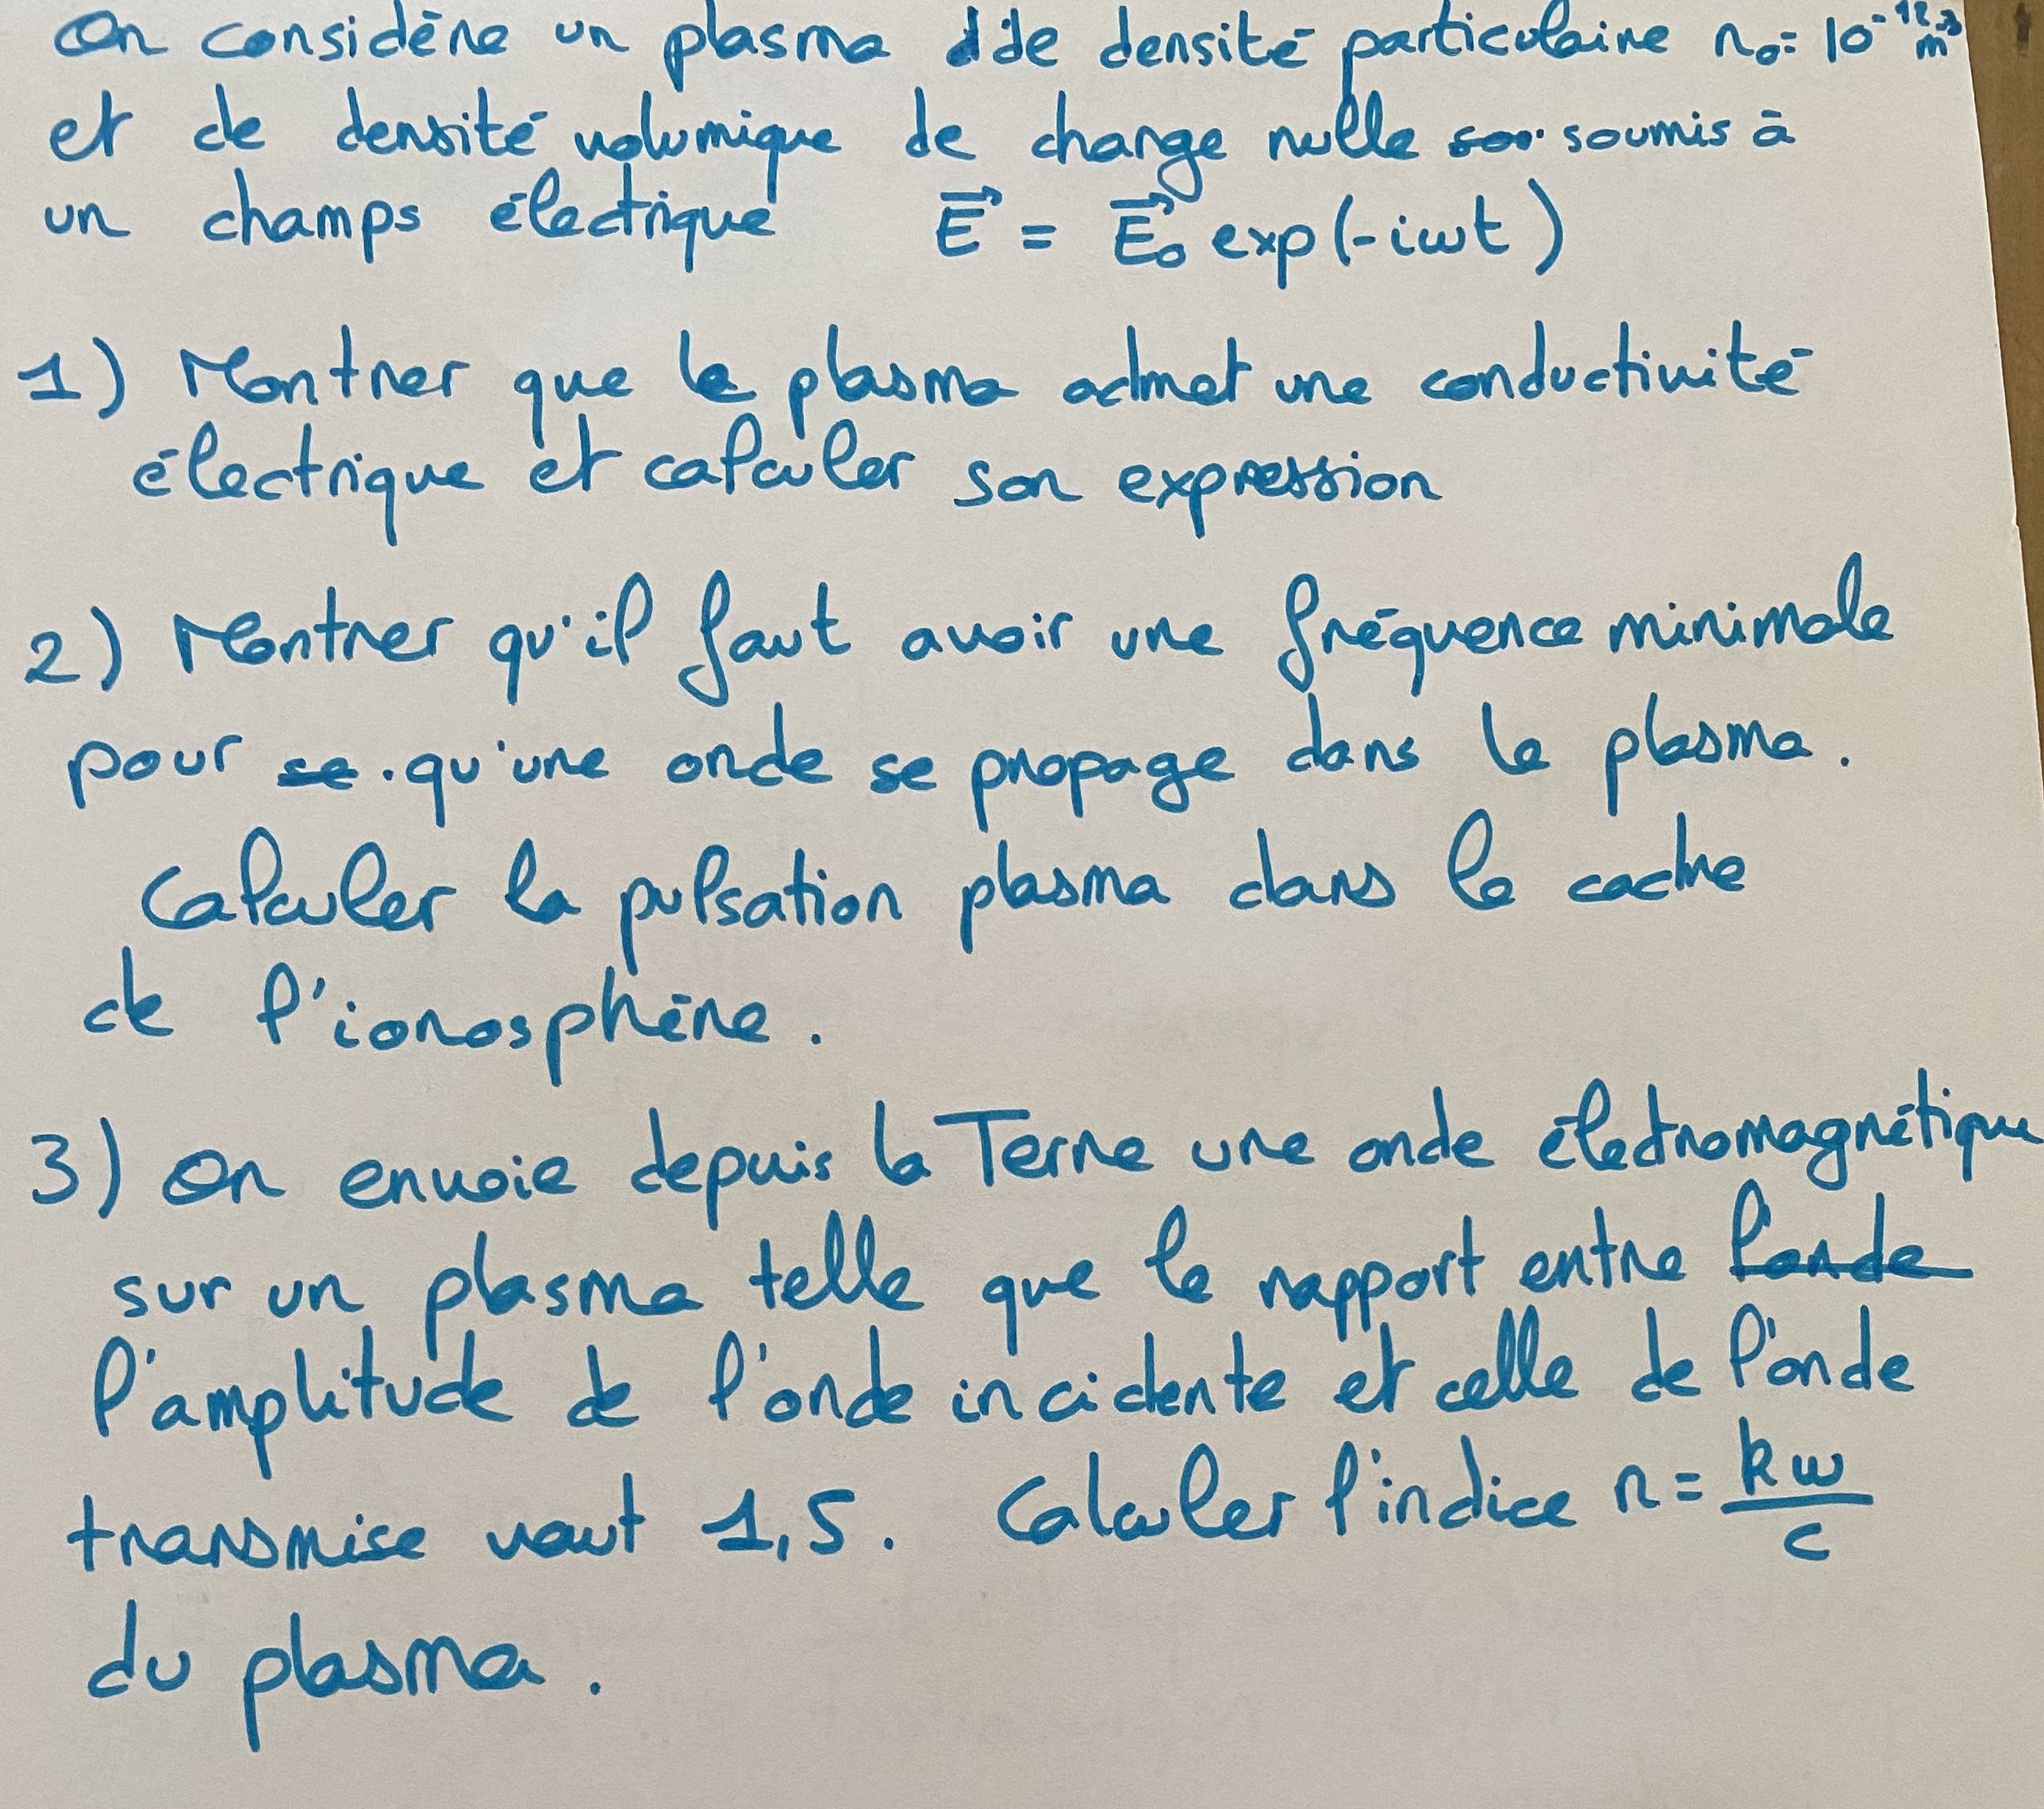 On considère un plasma de densité particulaire n₀ = 10⁻¹² m⁻³
et de densité volumique de charge nulle soumis à
un champs électrique E⃗ = E⃗₀ exp(-iωt)
1) Montrer que le plasma admet une conductivité
électrique et calculer son expression
2) Montrer qu'il faut avoir une fréquence minimale
pour qu'une onde se propage dans le plasma.
Calculer la pulsation plasma dans le cadre
de l'ionosphère.
3) On envoie depuis la Terre une onde électromagnétique
sur un plasma telle que le rapport entre
l'amplitude de l'onde incidente et celle de l'onde
transmise vaut 1,5. Calculer l'indice n = kω/c
du plasma.